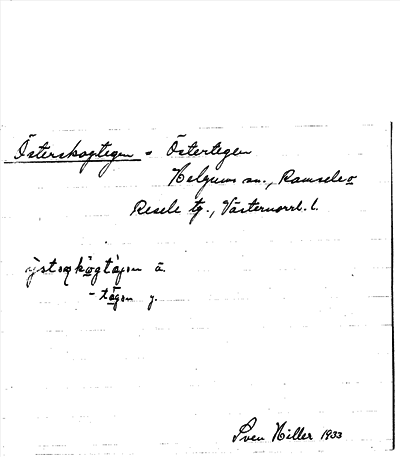 Österskogtegen = Östertegen
Helgums sn., Ramsele o
Resele tg., Västernorrl. l.
ä.
y.
Sven Hiller 1933